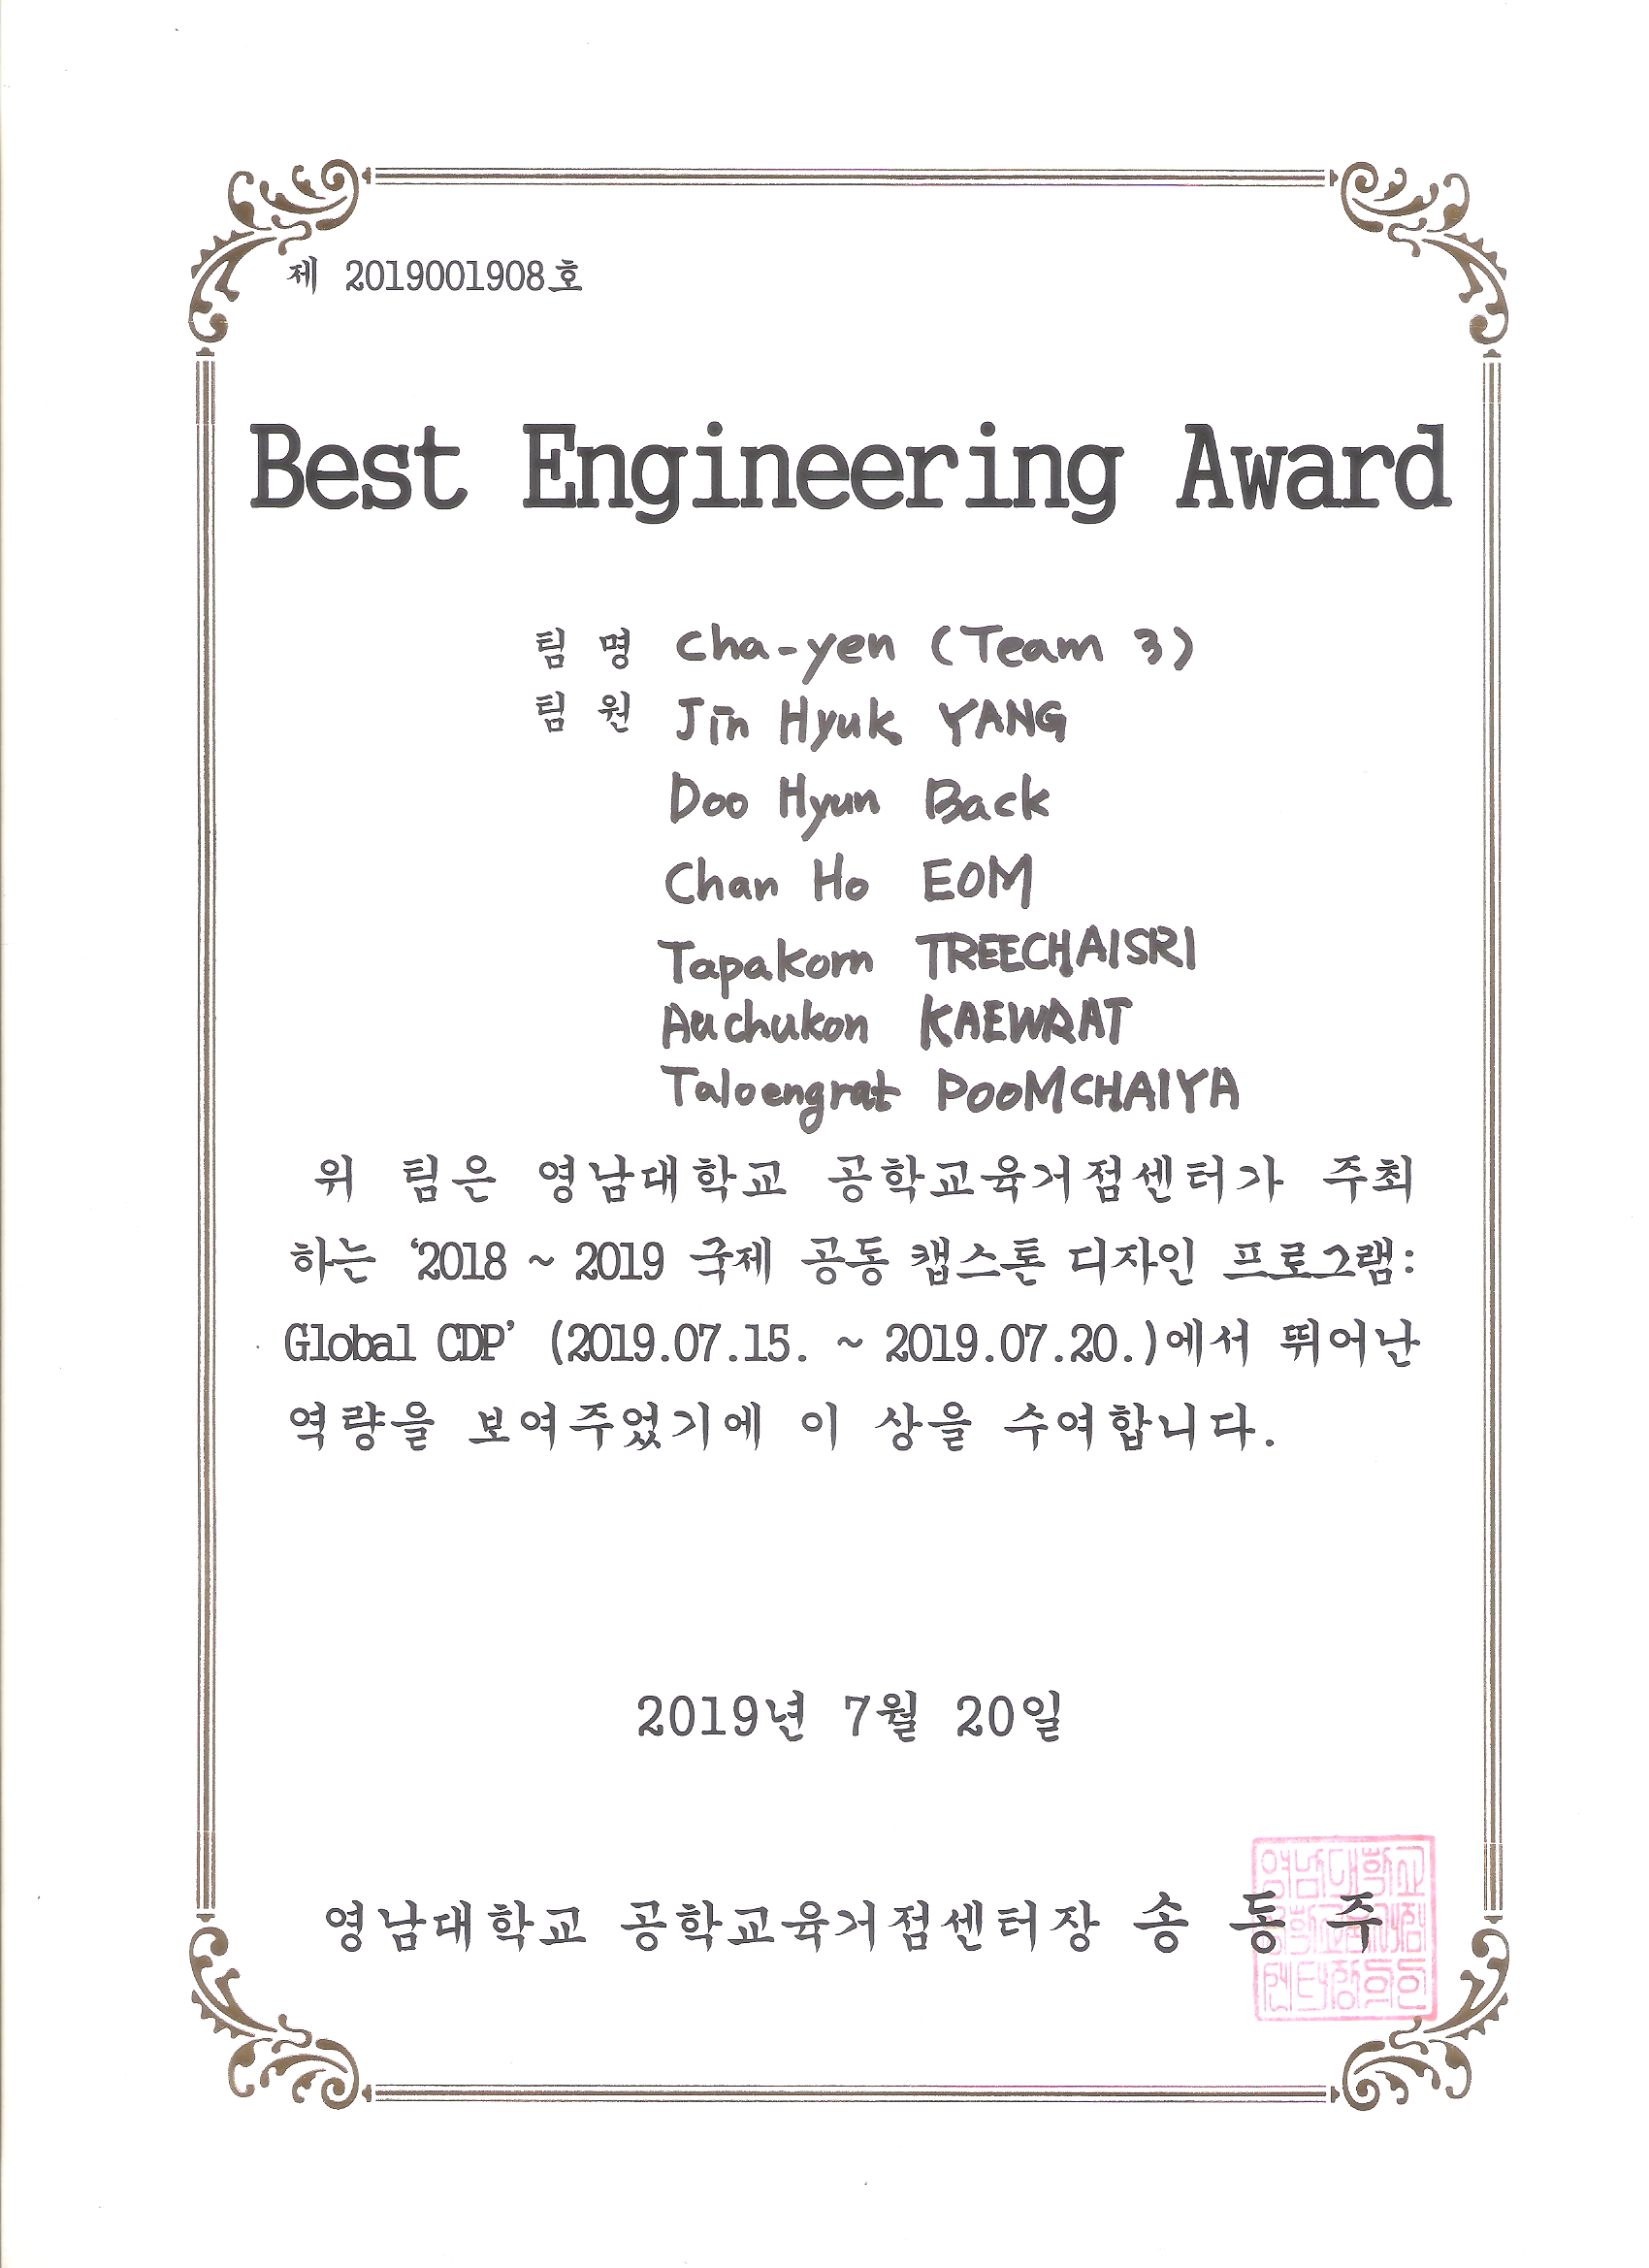 제 2019001908호
Best Engineering Award
팀 명 Cha-yen (Team 3)
팀 원 Jin Hyuk YANG
Doo Hyun Back
Chan Ho EOM
Tapakorn TREECHAISRI
Auchukon KAEWRAT
Taloengrat POOMCHAIYA
위 팀은 영남대학교 공학교육거점센터가 주최
하는 ‘2018 ~ 2019 국제 공동 캡스톤 디자인 프로그램:
Global CDP’ (2019.07.15. ~ 2019.07.20.)에서 뛰어난
역량을 보여주었기에 이 상을 수여합니다.
2019년 7월 20일
영남대학교 공학교육거점센터장 송 동 주
영남대학교